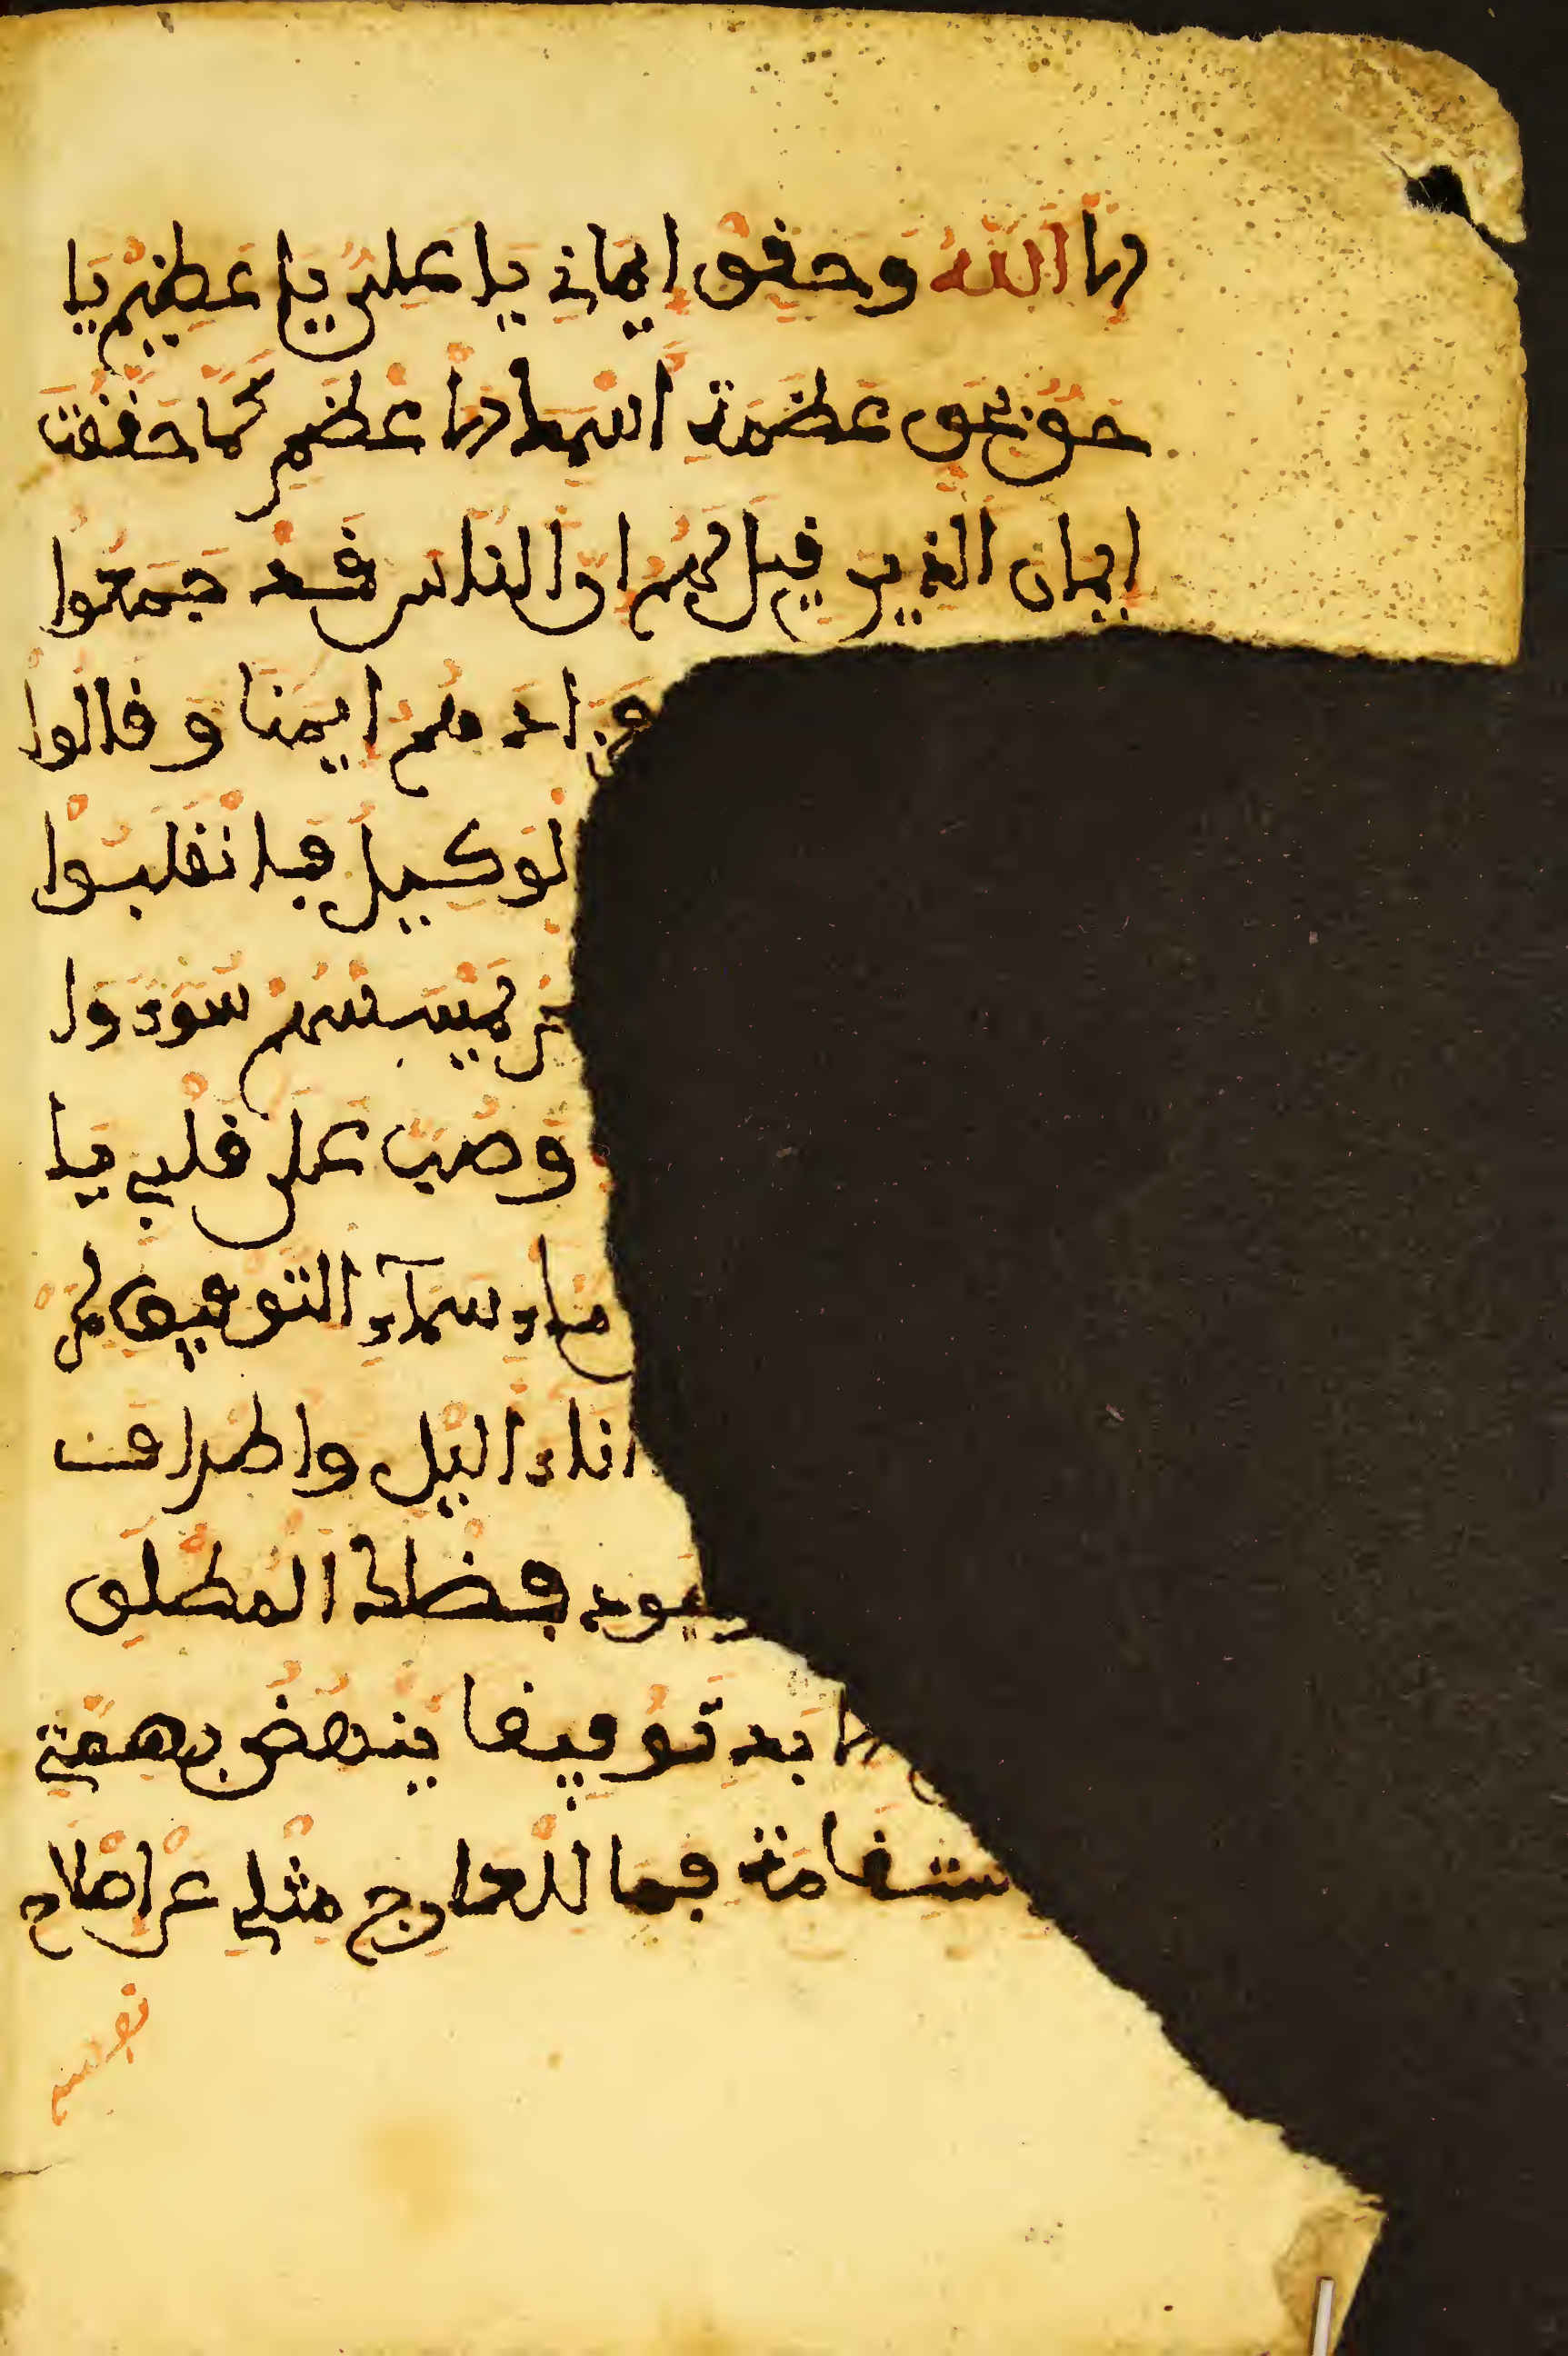 الا الله وحقق ايماني يا علي يا عظيم يا
حق بحق عظمة اسمك الاعظم كما حققت
ايمان الذين قيل لهم ان الناس قد جمعوا
فزادهم ايمنا وقالوا
لوكيل فانقلبوا
لم يمسسهم سوء وا
وصب على قلبي يا
ماء سماء التوفيق
اناء اليل واطراف
المطلق
لابد توفيقا ينهض بهمتي
ستقامة فما للعارج مثلي عن اصلاح
نفسه